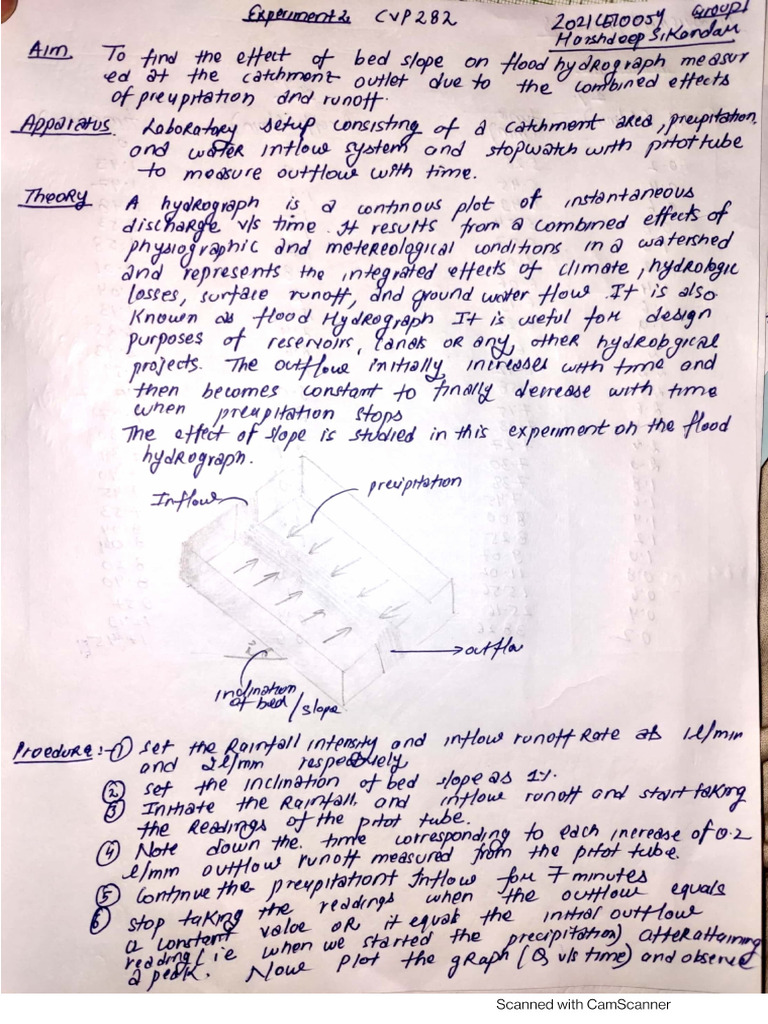 Experiment 2 CVP282 2021CE10054 Group1
Harshdeep S. Kondal
Aim To find the effect of bed slope on flood hydrograph measur
ed at the catchment outlet due to the combined effects
of precipitation and runoff.
Apparatus Laboratory setup consisting of a catchment area, precipitation,
and water inflow system and stopwatch with pitot tube
to measure outflow with time.
Theory A hydrograph is a continous plot of instantaneous
discharge v/s time. It results from a combined effects of
physiographic and metereological conditions in a watershed
and represents the integrated effects of climate, hydrologic
losses, surface runoff, and ground water flow. It is also
known as flood Hydrograph It is useful for design
purposes of reservoirs, canals or any other hydrological
projects. The outflow initially increases with time and
then becomes constant to finally decrease with time
when precipitation stops
The effect of slope is studied in this experiment on the flood
hydrograph.
Inflow
precipitation
outflow
inclination
of bed / slope
Procedure :- ① Set the Rainfall intensity and inflow runoff Rate as 1 l/min
and 2 l/min respectively
② set the inclination of bed slope as 1%.
③ Initiate the Rainfall and inflow runoff and start taking
the Readings of the pitot tube.
④ Note down the time corresponding to each increase of 0.2
l/min outflow runoff measured from the pitot tube.
⑤ Continue the precipitation Inflow for 7 minutes
⑥ stop taking the readings when the outflow equals
a constant value or it equals the initial outflow
reading (i.e when we started the precipitation) after attaining
a peak. Now plot the graph (Q v/s time) and observe
Scanned with CamScanner